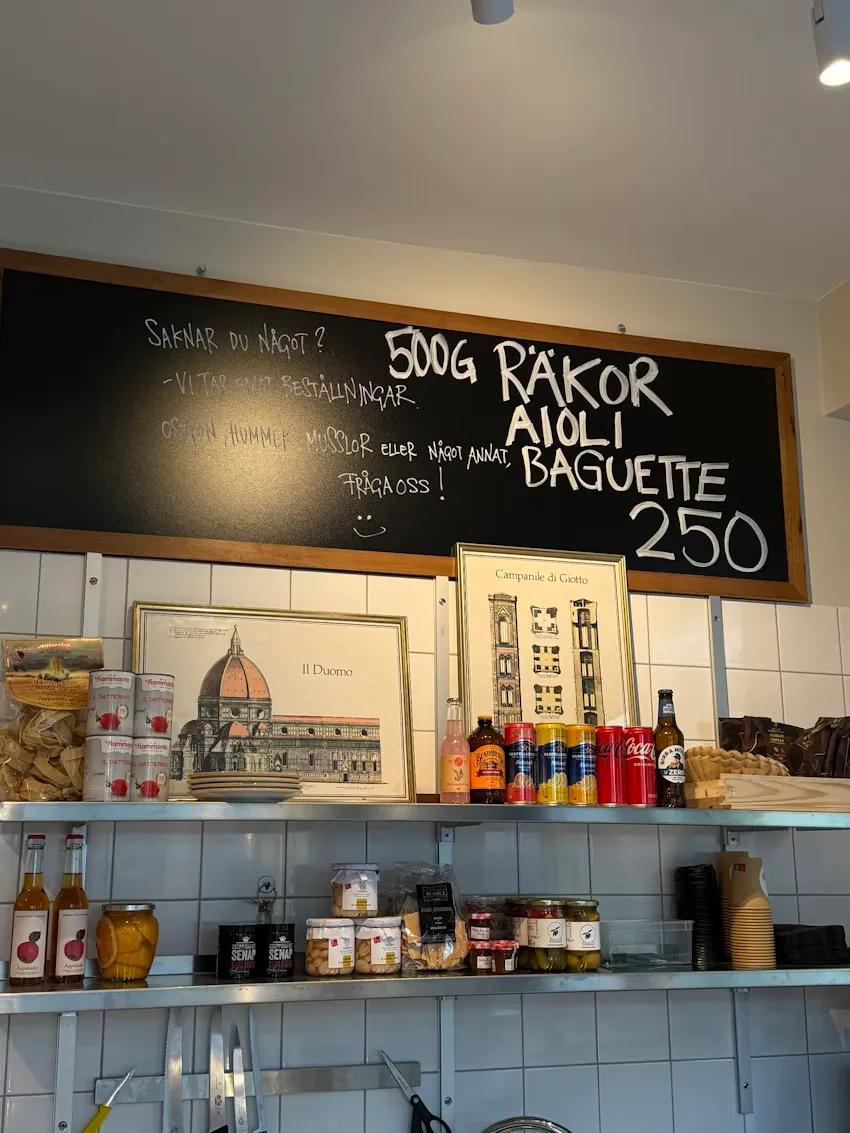 SAKNAR DU NÅGOT?
-VI TAR EMOT BESTÄLLNINGAR.
OSTRON, HUMMER, MUSSLOR ELLER NÅGOT ANNAT,
FRÅGA OSS!
500G RÄKOR
AIOLI
BAGUETTE
250
Il Duomo
Campanile di Giotto
fiammante
fiammante
IL DATTERINO
fiammante
fiammante
IL DATTERINO
Coca-Cola
BIRRA MORETTI
ZERO
SENAP
SENAP